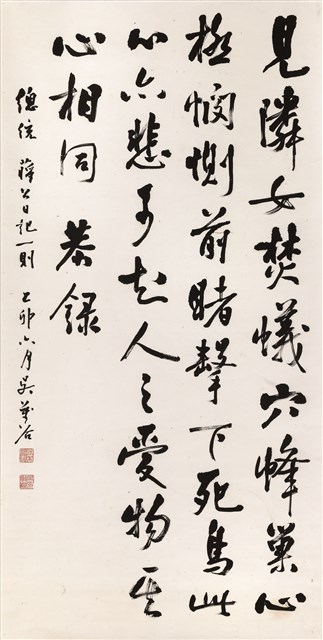 見隣女焚蟻穴蜂巢心
極憫惻前睹擊下死鳥此
心亦悲予知人之愛物其
心相同 恭錄
總統 蔣公日記一則 乙卯六月吳萬谷